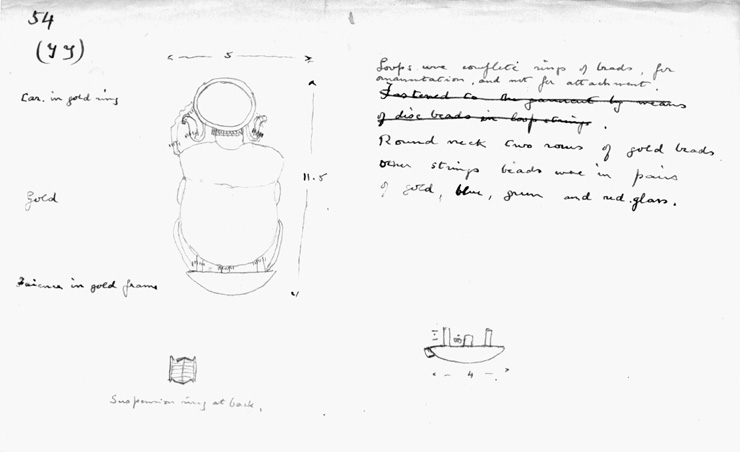 54
(yy)
5
Car. in gold ring
11.5
Gold
Faience in gold frame
Suspension ring at back.
Loops were complete rings of beads, for
ornamentation, and not for attachment.
Fastened to the garment by means
of disc beads in loop strings.
Round neck two rows of gold beads
other strings beads were in pairs
of gold, blue, green and red glass.
4